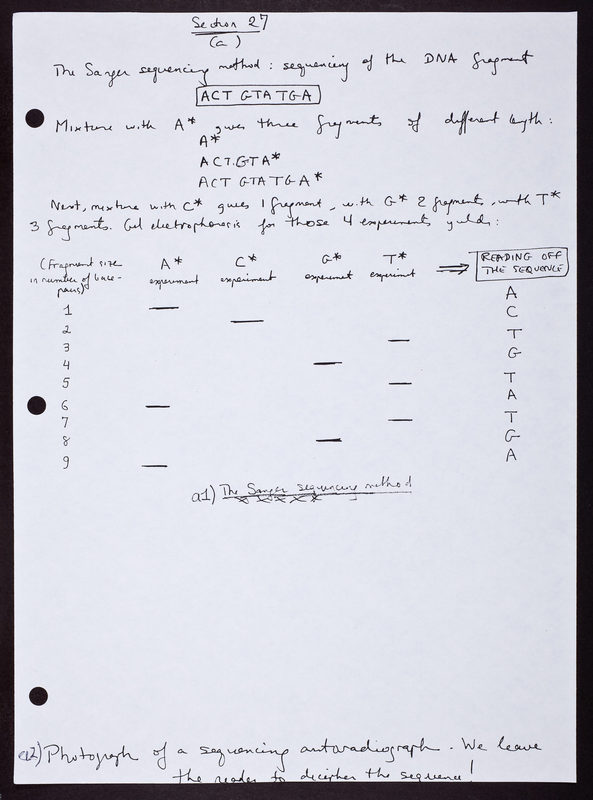 Section 27
(a)
The Sanger sequencing method: sequencing of the DNA fragment
ACT GTA TGA
Mixture with A* gives three fragments of different length:
A*
ACT GTA*
ACT GTATGA*
Next, mixture with C* gives 1 fragment, with G* 2 fragments, with T*
3 fragments. Gel electrophoresis for those 4 experiments yields:
(Fragment size in number of base-pairs) A* experiment C* experiment G* experiment T* experiment ⟹ READING OFF THE SEQUENCE
1 A
2 C
3 T
4 G
5 T
6 A
7 T
8 G
9 A
a1) The Sanger sequencing method
a2) Photograph of a sequencing autoradiograph. We leave
the reader to decipher the sequence!